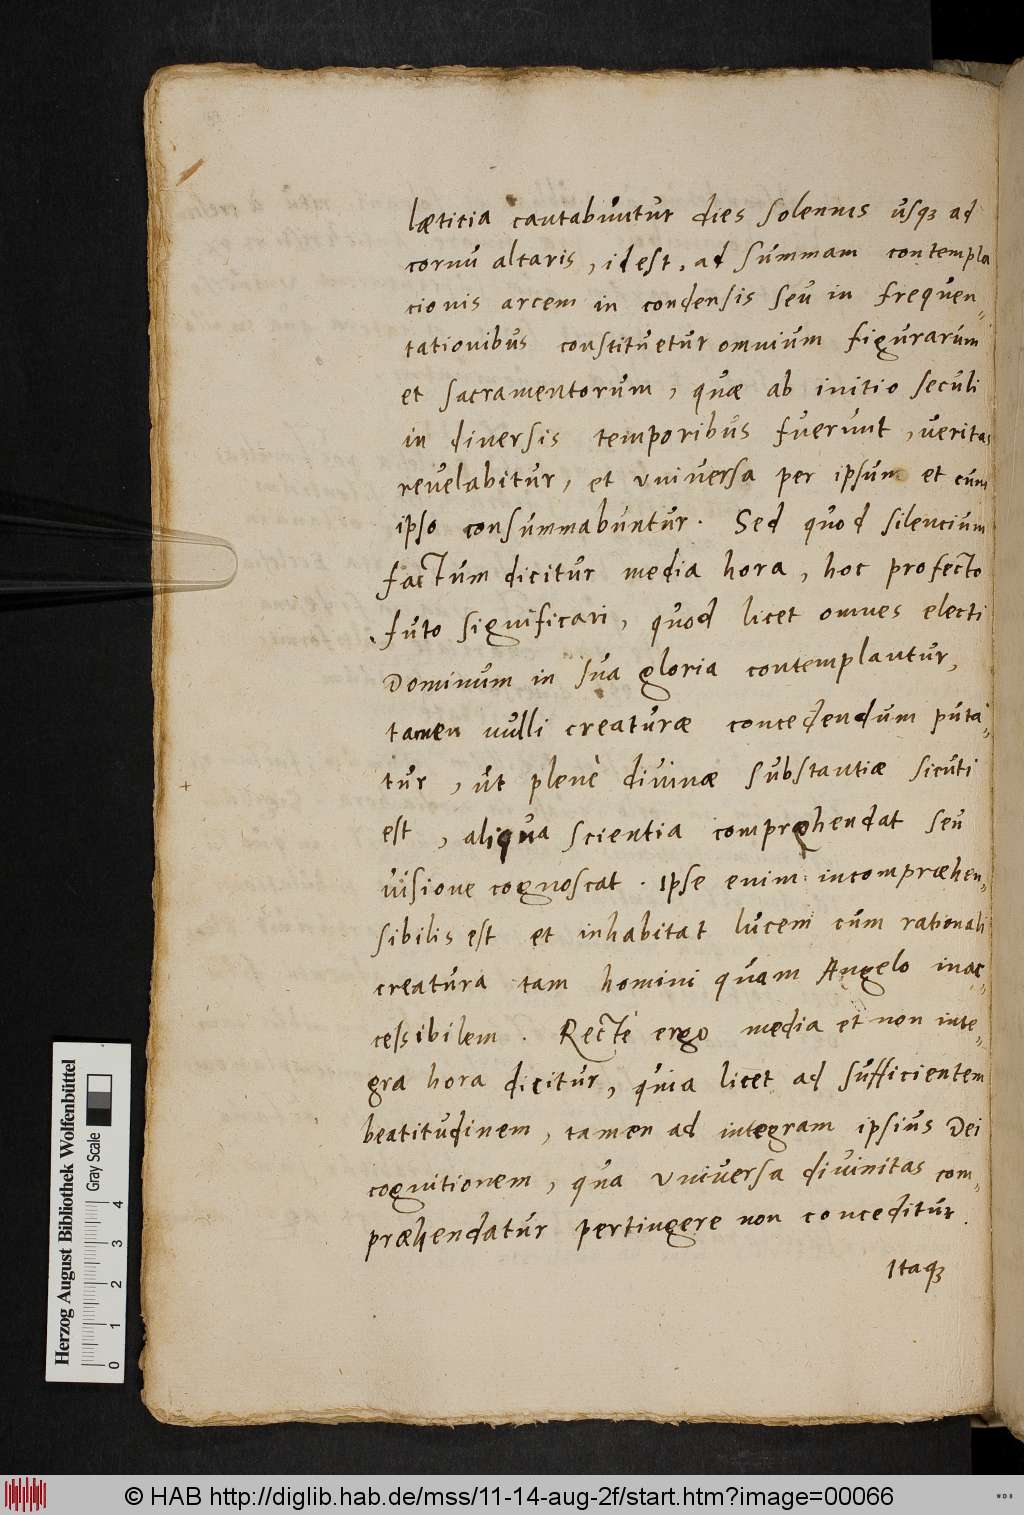 lætitia cantabuntur dies solennis usqꝫ ad
cornu altaris, id est, ad summam contempla
tionis arcem in condensis seu in frequen=
tationibus constituetur omnium figurarum
et sacramentorum, quæ ab initio seculi
in diversis temporibus fuerunt, veritas
revelabitur, et universa per ipsum et cum
ipso consummabuntur. Sed quod silencium
factum dicitur media hora, hoc profecto
puto significari, quod licet omnes electi
Dominum in sua gloria contemplantur,
tamen nulli creaturæ concedendum puta=
tur, ut plenè divinæ substantiæ sicuti
est, aliqua scientia compręhendat seu
visione cognoscat. Ipse enim incompræhen=
sibilis est et inhabitat lucem cum rationali
creatura tam homini quam Angelo inac=
cessibilem. Rectè ergo media et non inte=
gra hora dicitur, quia licet ad sufficientem
beatitudinem, tamen ad integram ipsius Dei
cognitionem, qua universa divinitas com=
præhendatur pertingere non conceditur.
Itaqꝫ
Herzog August Bibliothek Wolfenbüttel
Gray Scale
0 1 2 3 4
© HAB http://diglib.hab.de/mss/11-14-aug-2f/start.htm?image=00066